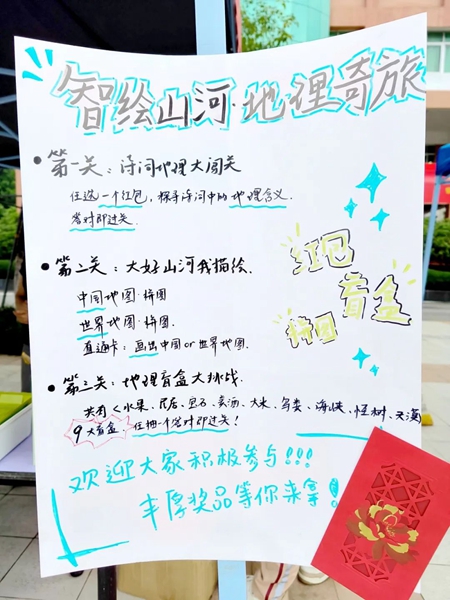 智绘山河·地理奇旅
第一关：诗词地理大闯关
任选一个红包，探寻诗词中的地理含义.
答对即过关.
红包
盲盒
拼图
第二关：大好山河我描绘.
中国地图·拼图
世界地图·拼图.
直通卡：画出中国or世界地图.
第三关：地理盲盒大挑战.
共有<水果、民居、宝石、菜汤、大米、鸟类、海峡、怪树、天漠
9大盲盒，任抽一个答对即过关！
欢迎大家积极参与!!!
丰厚奖品等你来拿!